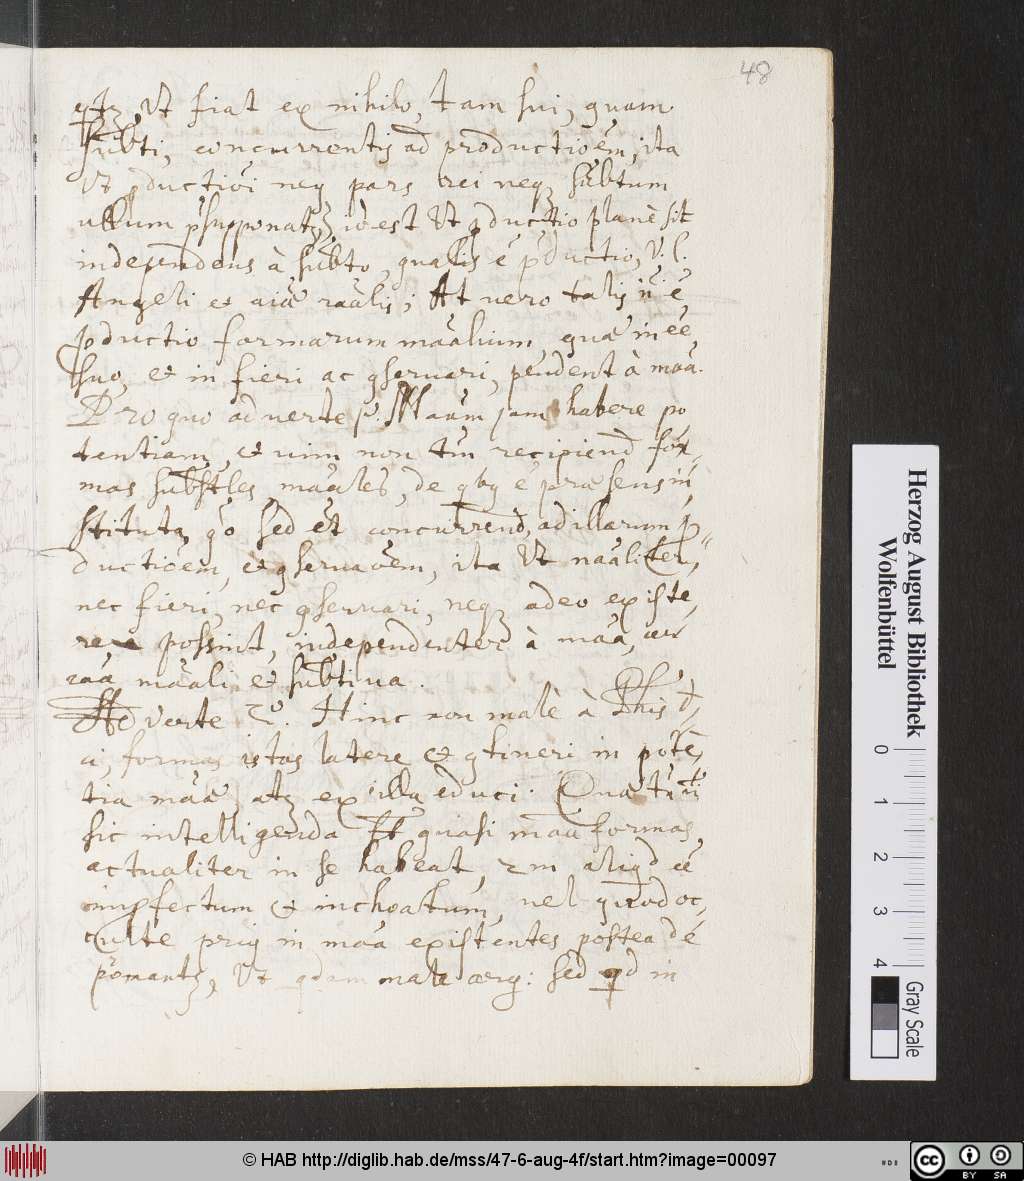 48
ut fiat ex nihilo, tam sui, quam
subti, concurrentis ad productioēm, ita
ut pductioi neq pars rei neq subtum
ullum psupponatz, id est ut pductio planè sit
independens à subto, qualis ē pductio, v. l.
Angeli et aiā raālis; At vero talis n̄ ē
pductio formarum maālium, quā in eē
suo, et in fieri ac qservari, pendent à maā.
Pro quo adverte pº Maām jam habere po
tentiam, et vim non tm recipiend for=
mas substles maāles, de qbq ē præsens in
stituta, qo sed et concurrend, ad illarum p
ductioēm, et qservaoēm, ita ut naāliter,
nec fieri, nec qservari, neq adeo existe,
re possint, independenter à maā,
maāli et subtiva.
Adverte 2º. Hinc non malè à Phis
ci, formas istas latere et qtineri in potē
tia maā atq ex illa educi. Qua
sic intelligenda quasi maā formas
actualiter in se habeat, aliqd eē
impfectum et inchoatum, vel quod oc,
culte priq in maā existentes postea de
pomantz, ut qdam male : sed qd in
Herzog August Bibliothek
Wolfenbüttel
0 1 2 3 4
Gray Scale
© HAB http://diglib.hab.de/mss/47-6-aug-4f/start.htm?image=00097
cc BY SA